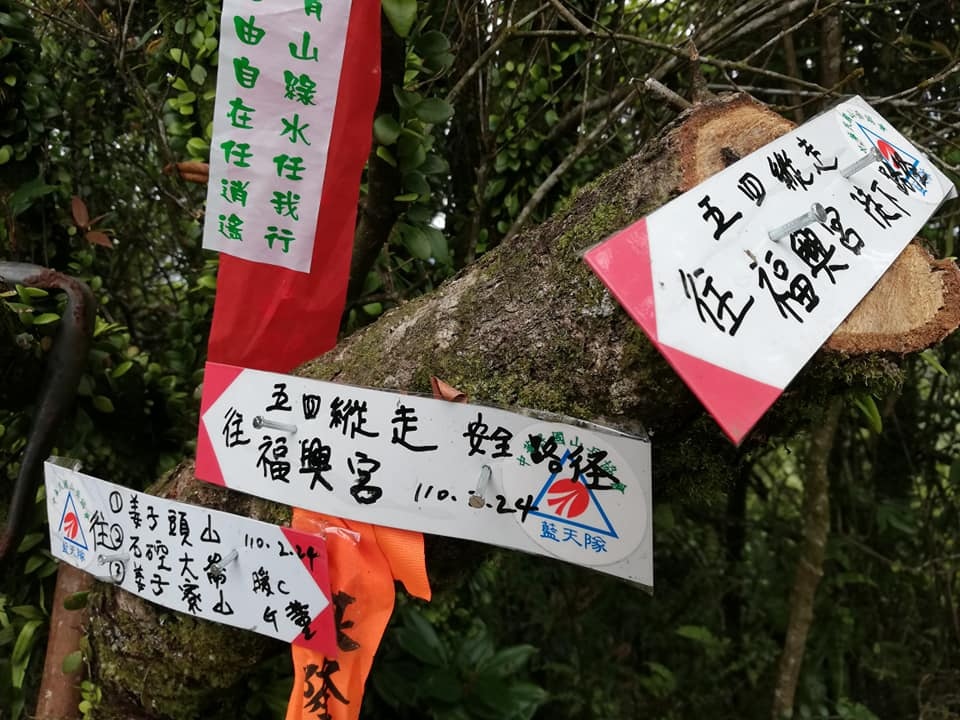 山綠水任我行
由自在任逍遙
五四縱走
往福興宮從下
五四縱走 安全路徑
往福興宮 110.2.24
藍天隊
往
①姜子頭山 110.2.24
②石硿大崙 暖C
③姜子寮山
藍天隊